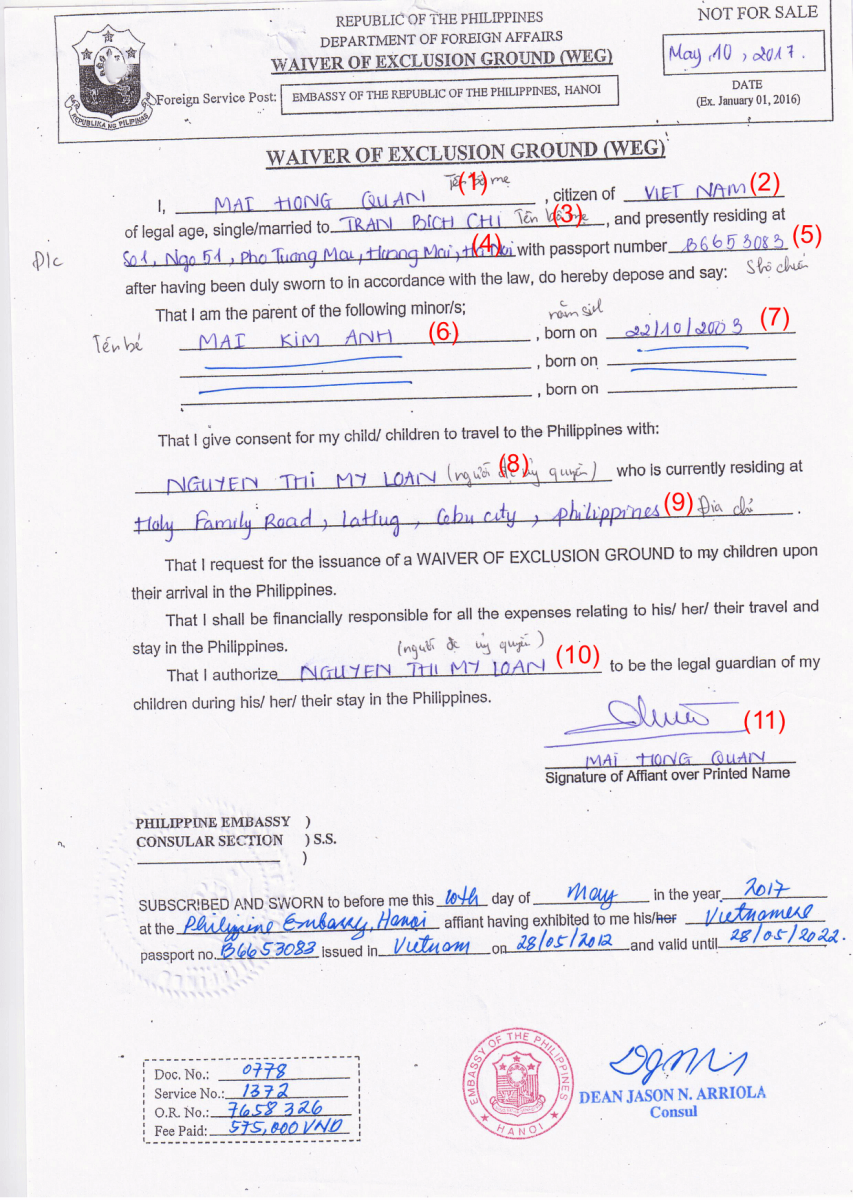 REPUBLIC OF THE PHILIPPINES
DEPARTMENT OF FOREIGN AFFAIRS
WAIVER OF EXCLUSION GROUND (WEG)
NOT FOR SALE
May, 10, 2017.
DATE
(Ex. January 01, 2016)
Foreign Service Post: EMBASSY OF THE REPUBLIC OF THE PHILIPPINES, HANOI
REPUBLIKA NG PILIPINAS
WAIVER OF EXCLUSION GROUND (WEG)
Tên bố mẹ
I, MAI HONG QUAN (1), citizen of VIET NAM (2)
of legal age, single/married to TRAN BICH CHI Tên (3) mẹ, and presently residing at
Đ/c So 1, Ngo 51, Pho Tuong Mai, Hoang Mai, (4) Ha Noi with passport number B6653083 (5)
after having been duly sworn to in accordance with the law, do hereby depose and say: Số hộ chiếu
That I am the parent of the following minor/s; năm sinh
Tên bé MAI KIM ANH (6), born on 22/10/2003 (7)
, born on
, born on
That I give consent for my child/ children to travel to the Philippines with:
NGUYEN THI MY LOAN (người đc ủy quyền) (8) who is currently residing at
Holy Family Road, Lathug, Cebu city, philippines (9) Địa chỉ.
That I request for the issuance of a WAIVER OF EXCLUSION GROUND to my children upon
their arrival in the Philippines.
That I shall be financially responsible for all the expenses relating to his/ her/ their travel and
stay in the Philippines. (người đc ủy quyền)
That I authorize NGUYEN THI MY LOAN (10) to be the legal guardian of my
children during his/ her/ their stay in the Philippines.
(11)
MAI HONG QUAN
Signature of Affiant over Printed Name
PHILIPPINE EMBASSY )
CONSULAR SECTION ) S.S.
)
SUBSCRIBED AND SWORN to before me this 10th day of May in the year 2017
at the Philippine Embassy, Hanoi affiant having exhibited to me his/her Vietnamese
passport no. B6653083 issued in Vietnam on 28/05/2012 and valid until 28/05/2022.
Doc. No.: 0778
Service No.: 1372
O.R. No.: 7658326
Fee Paid: 575,000 VND
EMBASSY OF THE PHILIPPINES
HANOI
DEAN JASON N. ARRIOLA
Consul